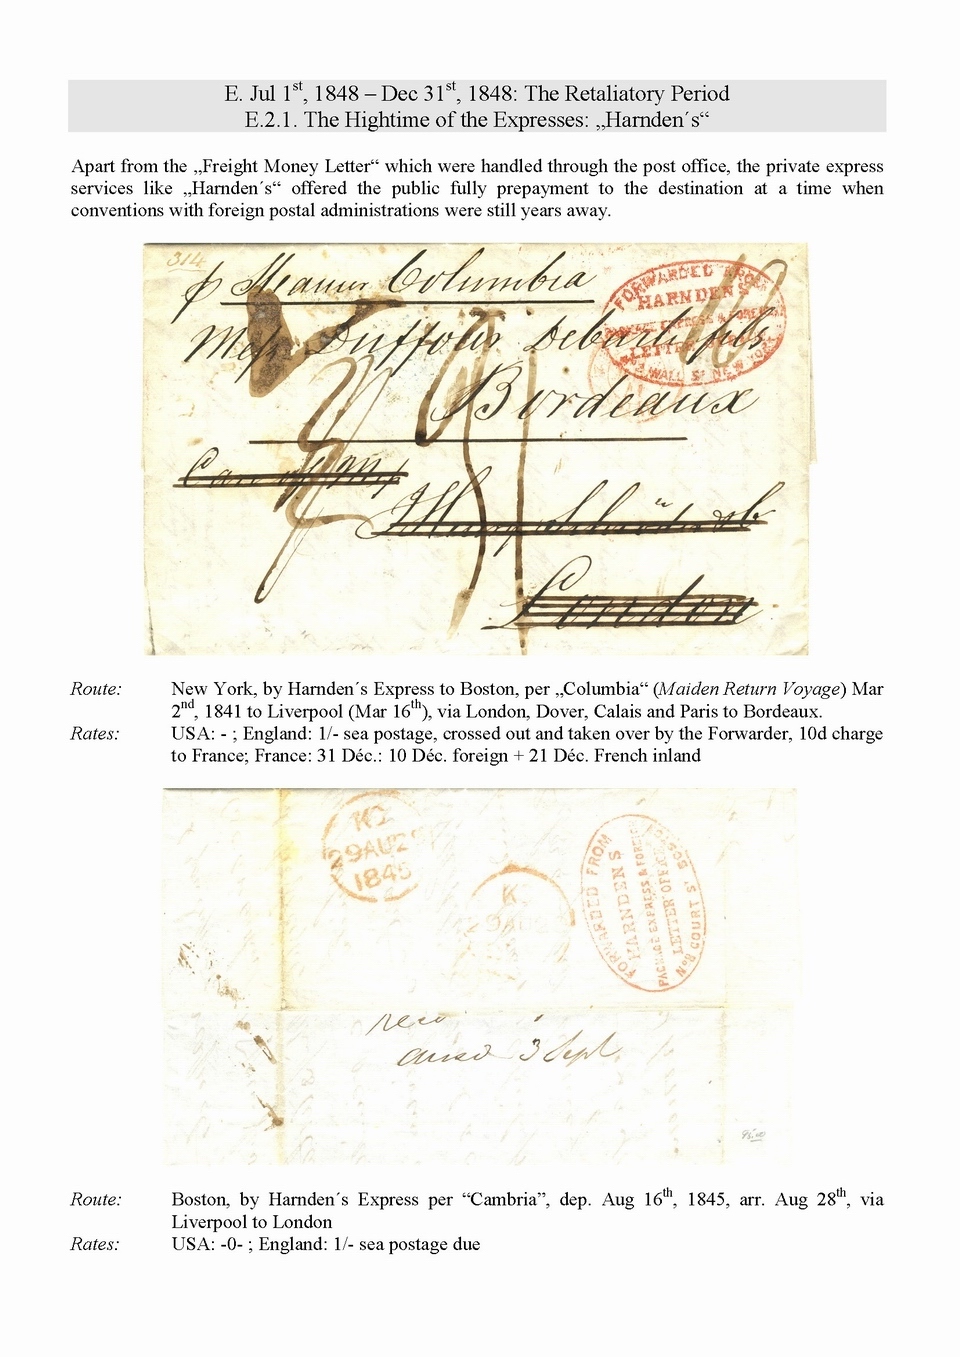 E. Jul 1st, 1848 – Dec 31st, 1848: The Retaliatory Period
E.2.1. The Hightime of the Expresses: „Harnden´s“
Apart from the „Freight Money Letter“ which were handled through the post office, the private express
services like „Harnden´s“ offered the public fully prepayment to the destination at a time when
conventions with foreign postal administrations were still years away.
314
p Steamer Columbia
FORWARDED
HARNDEN'S
PACKAGE EXPRESS & FOREIGN
LETTER
WALL St NEW YORK
Mess Duffour Debarde fils
Bordeaux
London
Route: New York, by Harnden´s Express to Boston, per „Columbia“ (Maiden Return Voyage) Mar
2nd, 1841 to Liverpool (Mar 16th), via London, Dover, Calais and Paris to Bordeaux.
Rates: USA: - ; England: 1/- sea postage, crossed out and taken over by the Forwarder, 10d charge
to France; France: 31 Déc.: 10 Déc. foreign + 21 Déc. French inland
29AU29
1845
K
FORWARDED FROM
HARNDENS
PACKAGE EXPRESS & FOREIGN
LETTER OFFICE
No 8 COURT St BOSTON
recd
ansd 3 Sept
Route: Boston, by Harnden´s Express per “Cambria”, dep. Aug 16th, 1845, arr. Aug 28th, via
Liverpool to London
Rates: USA: -0- ; England: 1/- sea postage due